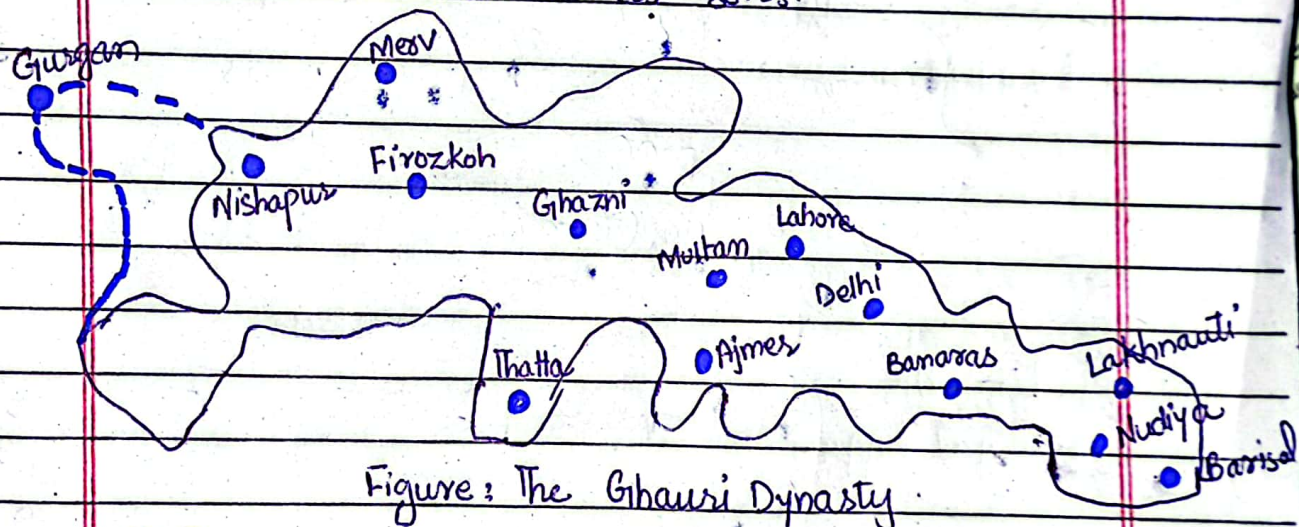 Gurgan
Merv
Firozkoh
Nishapur
Ghazni
Lahore
Multan
Delhi
Thatta
Ajmer
Banaras
Lakhnauti
Nudiya
Barisal
Figure: The Ghauri Dynasty.